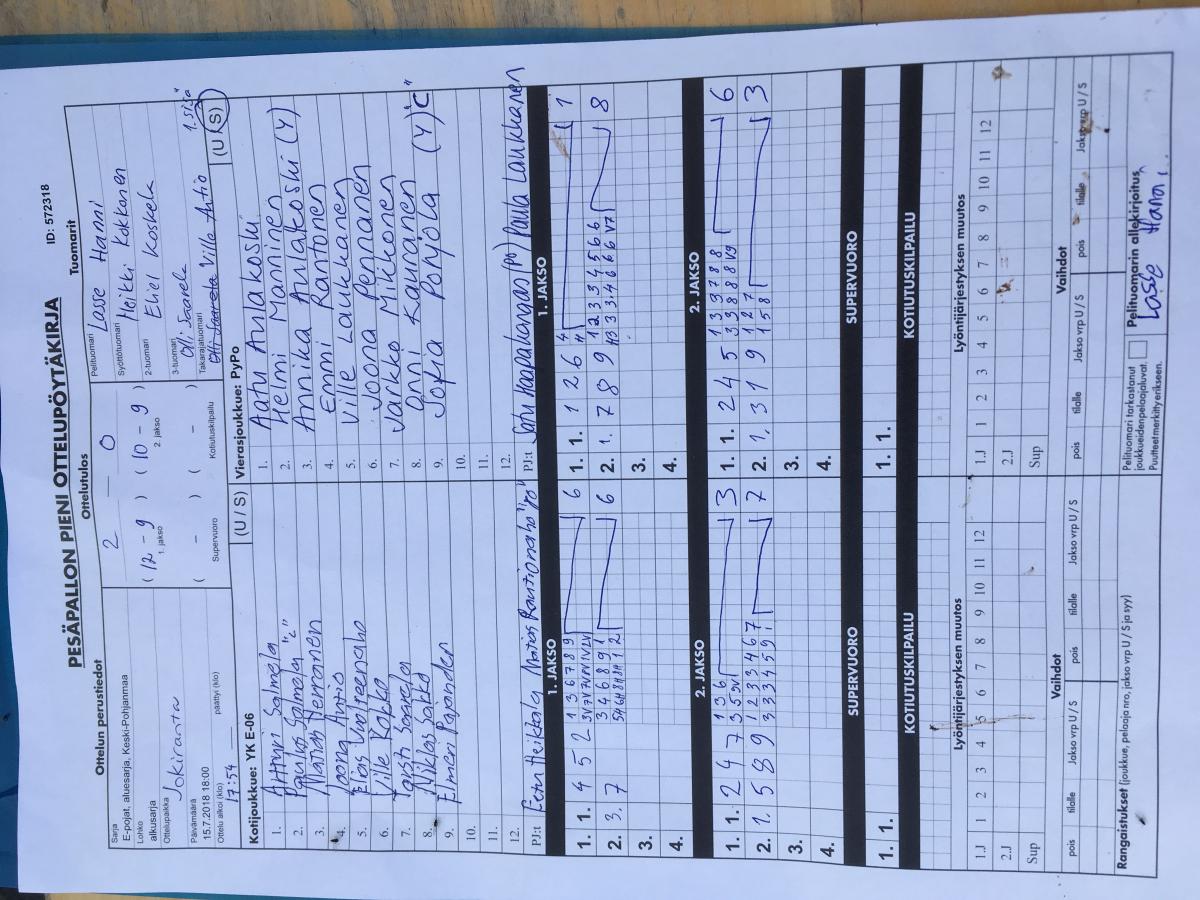 PESÄPALLON PIENI OTTELUPÖYTÄKIRJA
ID: 572318
Ottelun perustiedot
Sarja
E-pojat, aluesarja, Keski-Pohjanmaa
Lohko
alkusarja
Ottelupaikka
Jokiranta
Päivämäärä
15.7.2018 18:00
Ottelu alkoi (klo)
päättyi (klo)
17:54
Ottelutulos
2 — 0
( 12 - 9 ) ( 10 - 9 )
1. jakso 2. jakso
( - ) ( - )
Supervuoro Kotiutuskilpailu
Tuomarit
Pelituomari Lasse Hanni
Syöttötuomari Heikki Kokkonen
2-tuomari Eliel Koskela
3-tuomari Olli Saarela
Takarajatuomari Olli Saarela Ville Autio
Kotijoukkue: YK E-06 (U / S)
1. Atturi Salmela
2. Paulus Salmela "c"
3. Matias Hernanen
4. Joona Aunio
5. Elias Vuolteenaho
6. Ville Kokko
7. Torsti Saarela
8. Niklas Sakko
9. Elmeri Paananen
10.
11.
12.
PJ:t Eetu Heikkala, Matias Rautionaho "PJ"
Vierasjoukkue: PyPo (U / S) 1. sisä
1. Aatu Anlakoski
2. Helmi Manninen
3. Annika Anlakoski (Y)
4. Emmi Rantonen
5. Ville Laukkanen
6. Joona Pennanen
7. Jaikko Mikkonen
8. Onni Kaunanen
9. Sofia Pohjola (Y) "C"
10.
11.
12.
PJ:t Satu Haapakangas (PJ) Paula Laukkanen
1. JAKSO
1. 1. 4 5 2 1 3 6 7 8 9 6
2. 3. 7 3 4 6 8 9 1 6
3.
4.
1. JAKSO
1. 1. 1 2 6 4 1
2. 1. 7 8 9 1 2 3 3 4 5 6 6 8
3.
4.
2. JAKSO
1. 1. 2 4 7 1 3 6 3
2. 1. 5 8 9 1 2 3 3 4 6 7 7
3.
4.
2. JAKSO
1. 1. 2 4 5 1 3 3 7 8 8 6
2. 1. 3 1 9 1 2 7 3
3.
4.
SUPERVUORO
1. 1.
SUPERVUORO
1. 1.
KOTIUTUSKILPAILU
KOTIUTUSKILPAILU
Lyöntijärjestyksen muutos
1.J 1 2 3 4 5 6 7 8 9 10 11 12
2.J
Sup
Lyöntijärjestyksen muutos
1.J 1 2 3 4 5 6 7 8 9 10 11 12
2.J
Sup
Vaihdot
pois tilalle Jakso vrp U / S pois tilalle Jakso vrp U / S
Vaihdot
pois tilalle Jakso vrp U / S pois tilalle Jakso vrp U / S
Rangaistukset (joukkue, pelaaja nro, jakso vrp U / S ja syy)
Pelituomari tarkastanut
joukkueiden pelaajaluvat.
Puutteet merkitty erikseen.
Pelituomarin allekirjoitus
Lasse Hanni